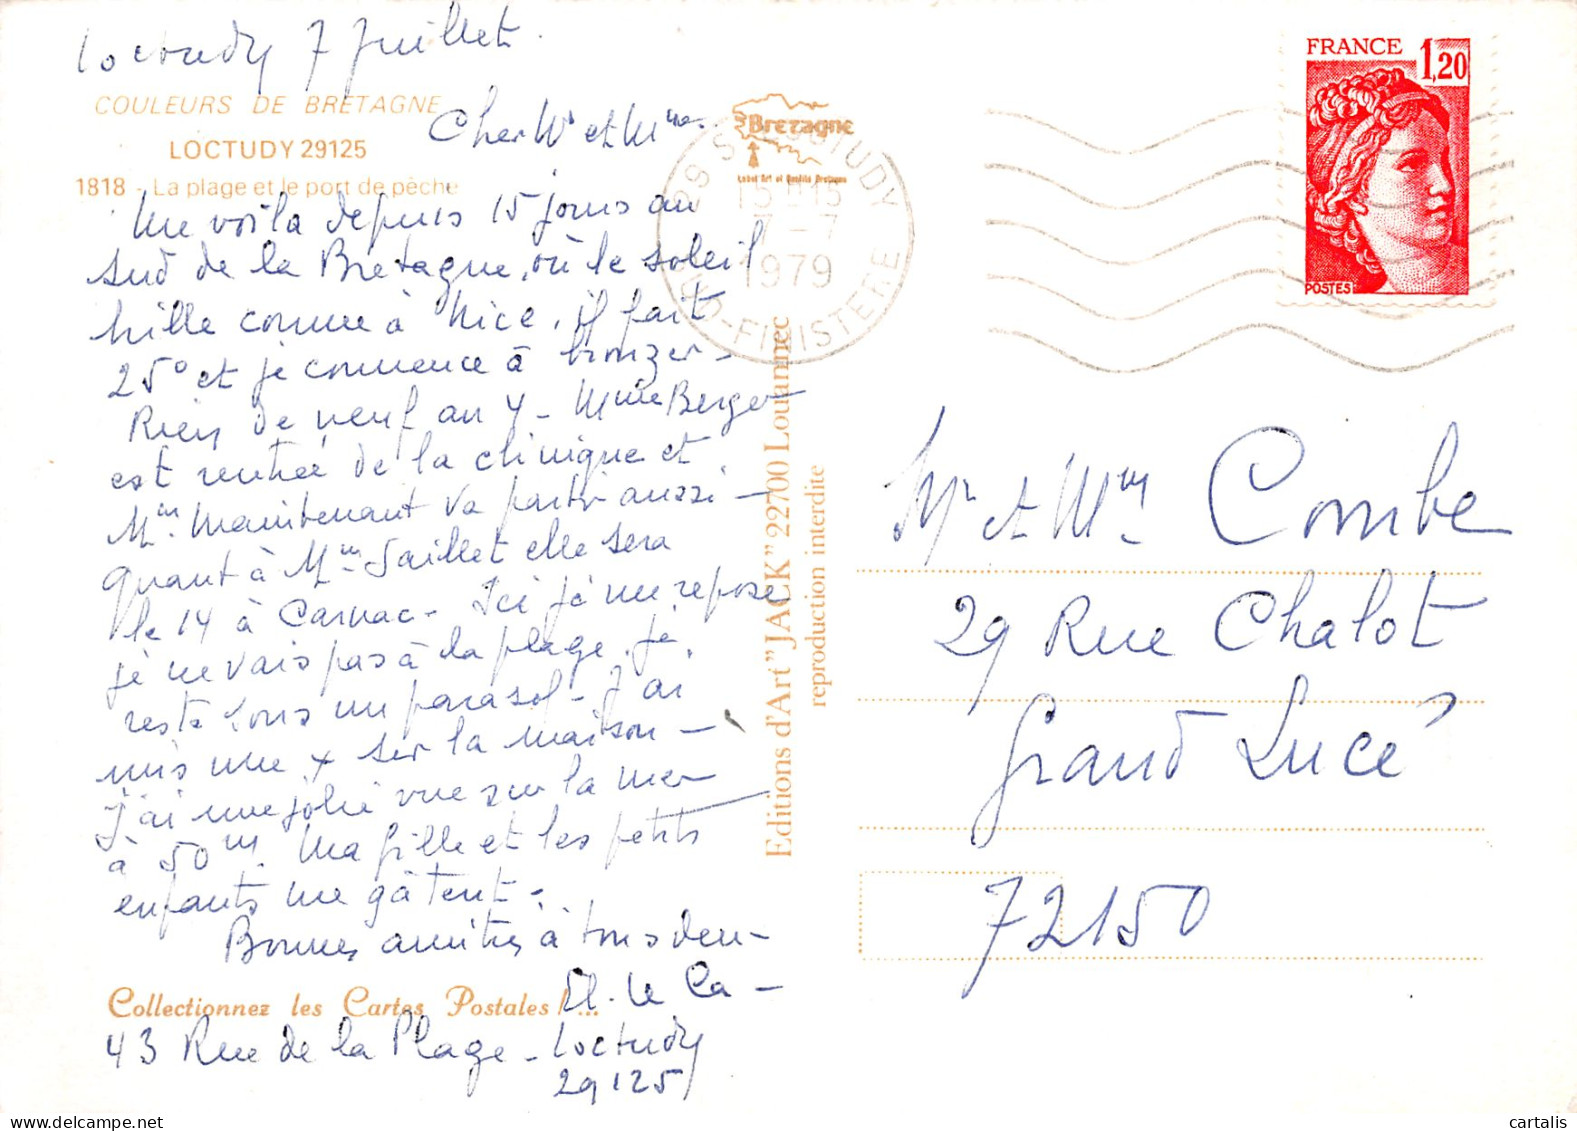 Loctudy 7 Juillet
COULEURS DE BRETAGNE
LOCTUDY 29125
1818 - La plage et le port de pêche
Cher Mr et Mme
Me voilà depuis 15 jours au
sud de la Bretagne, où le soleil
brille comme à Nice, il fait
25° et je commence à bronzer -
Rien de neuf au 4 - Mme Berger
est rentrée de la clinique et
Mme Maintenant va partir aussi -
quant à Mme Saillet elle sera
le 14 à Carnac - Ici je me repose
je ne vais pas à la plage, je
reste sous un parasol - J'ai
mis une x sur la maison -
J'ai une jolie vue sur la mer
à 50 m. Ma fille et les petits
enfants me gâtent -
Bonnes amitiés à tous deux -
Collectionnez les Cartes Postales ! ...
43 Rue de la Plage - Loctudy
29125
Bretagne
Editions d'Art "JACK" 22700 Louannec
reproduction interdite
LOCTUDY
15 H 15
7 - 7
1979
SUD-FINISTERE
FRANCE 1,20
POSTES
Mr et Mme Combe
29 Rue Chalot
Grand Lucé
72150
cartalis